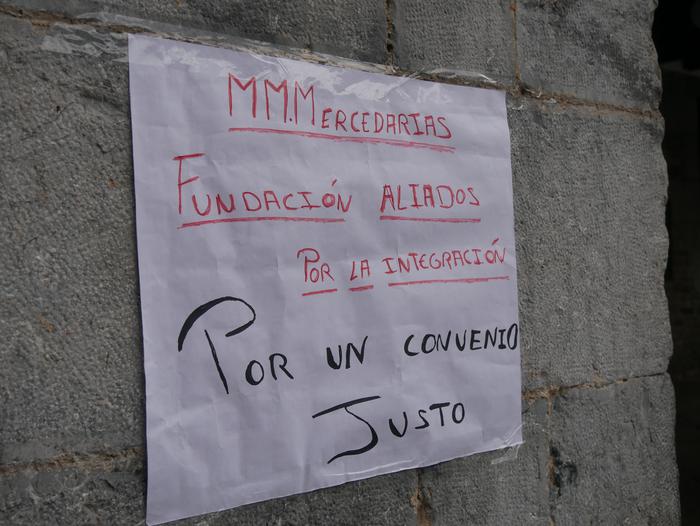 MM.MERCEDARIAS
FUNDACIÓN ALIADOS
POR LA INTEGRACIÓN
POR UN CONVENIO
JUSTO